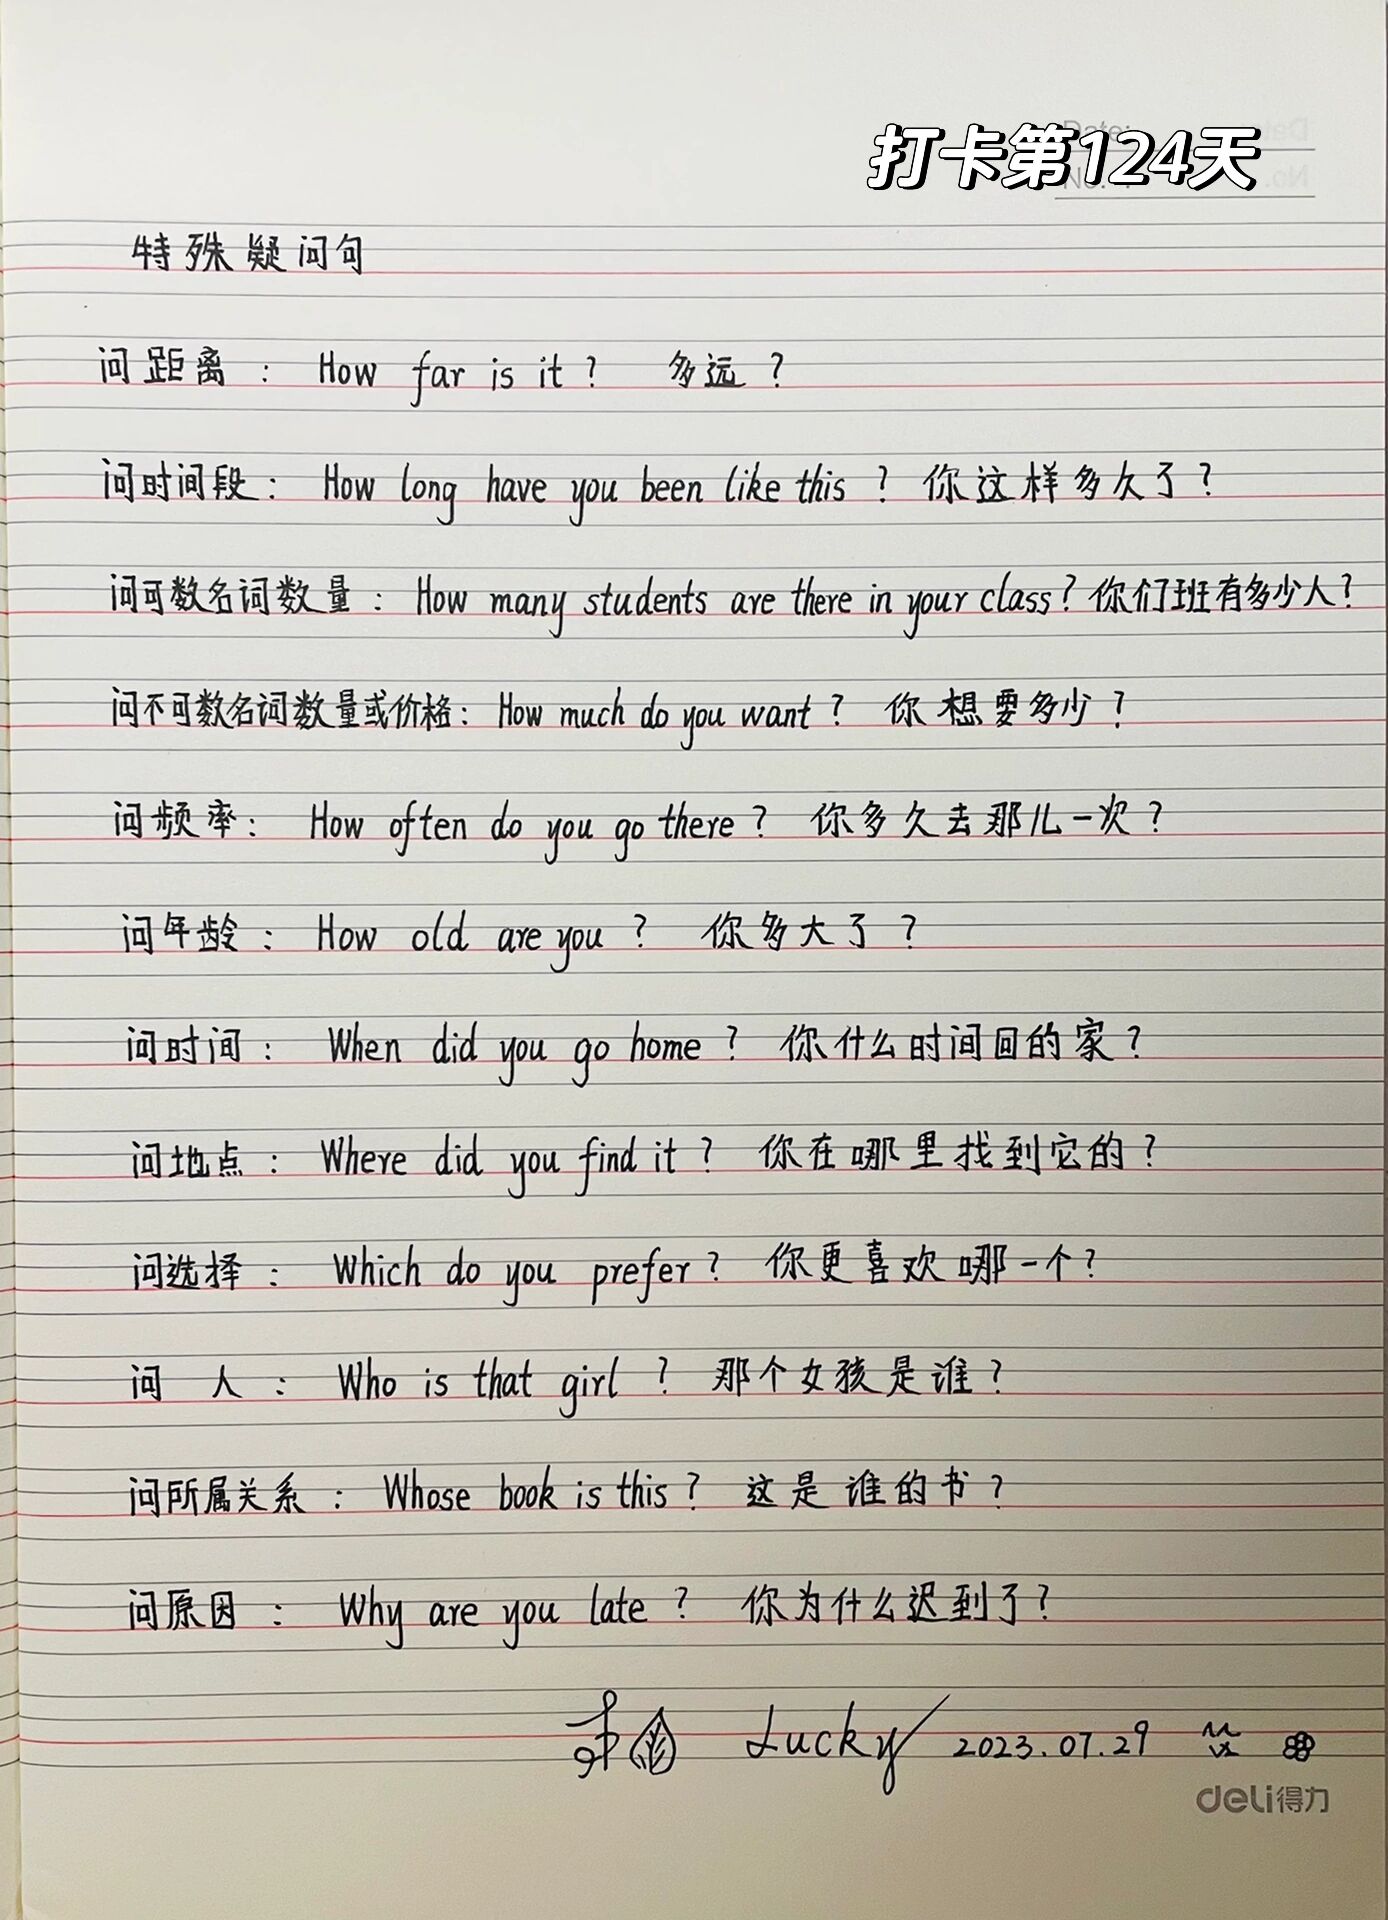 打卡第124天
特殊疑问句
问距离： How far is it？ 多远？
问时间段： How long have you been like this？ 你这样多久了？
问可数名词数量： How many students are there in your class？你们班有多少人？
问不可数名词数量或价格： How much do you want？ 你想要多少？
问频率： How often do you go there？ 你多久去那儿一次？
问年龄： How old are you？ 你多大了？
问时间： When did you go home？ 你什么时间回的家？
问地点： Where did you find it？ 你在哪里找到它的？
问选择： Which do you prefer？ 你更喜欢哪一个？
问 人： Who is that girl？ 那个女孩是谁？
问所属关系： Whose book is this？ 这是谁的书？
问原因： Why are you late？ 你为什么迟到了？
Lucky 2023.07.29
deli得力